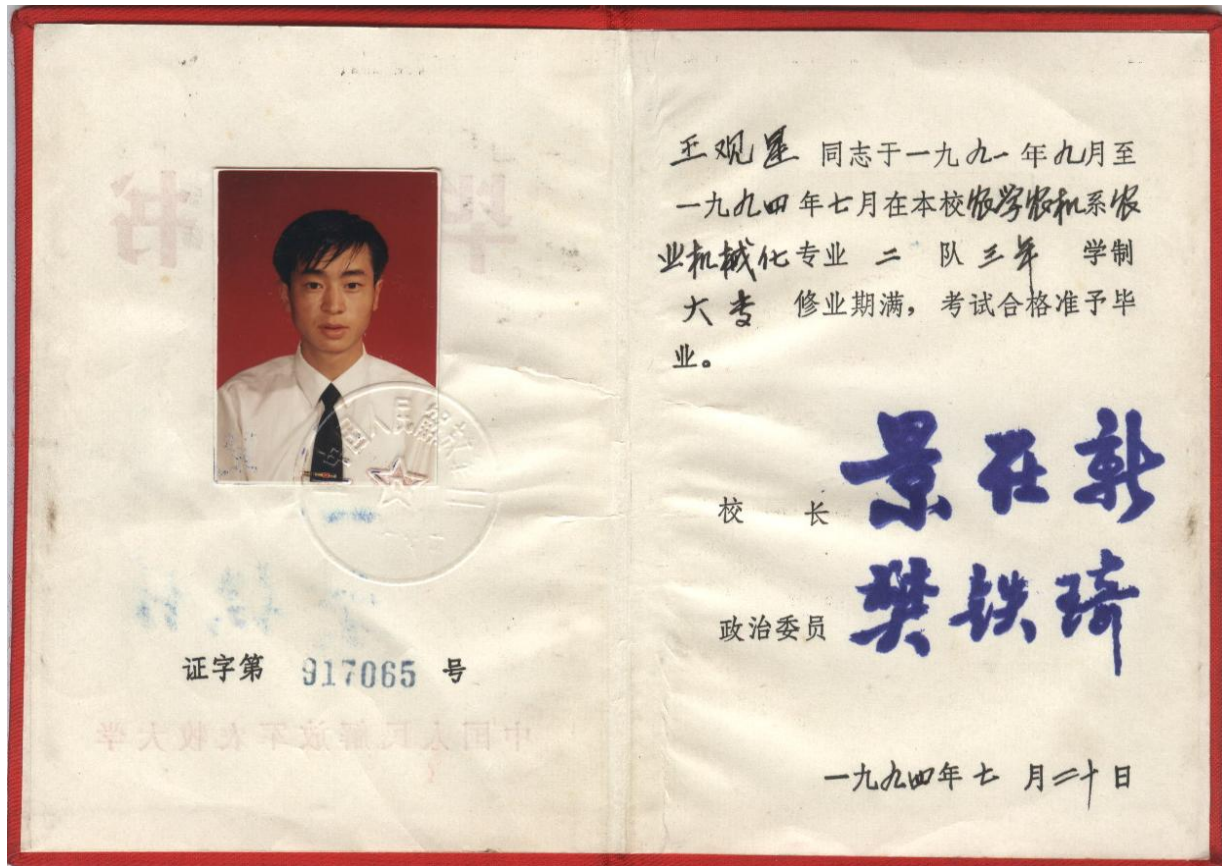 中国人民解放军
证字第 917065 号
王观星 同志于一九九一年九月至
一九九四年七月在本校农学农机系农
业机械化专业 二 队三年 学制
大专 修业期满，考试合格准予毕
业。
校 长 景在新
政治委员 樊铁琦
一九九四年七月二十日